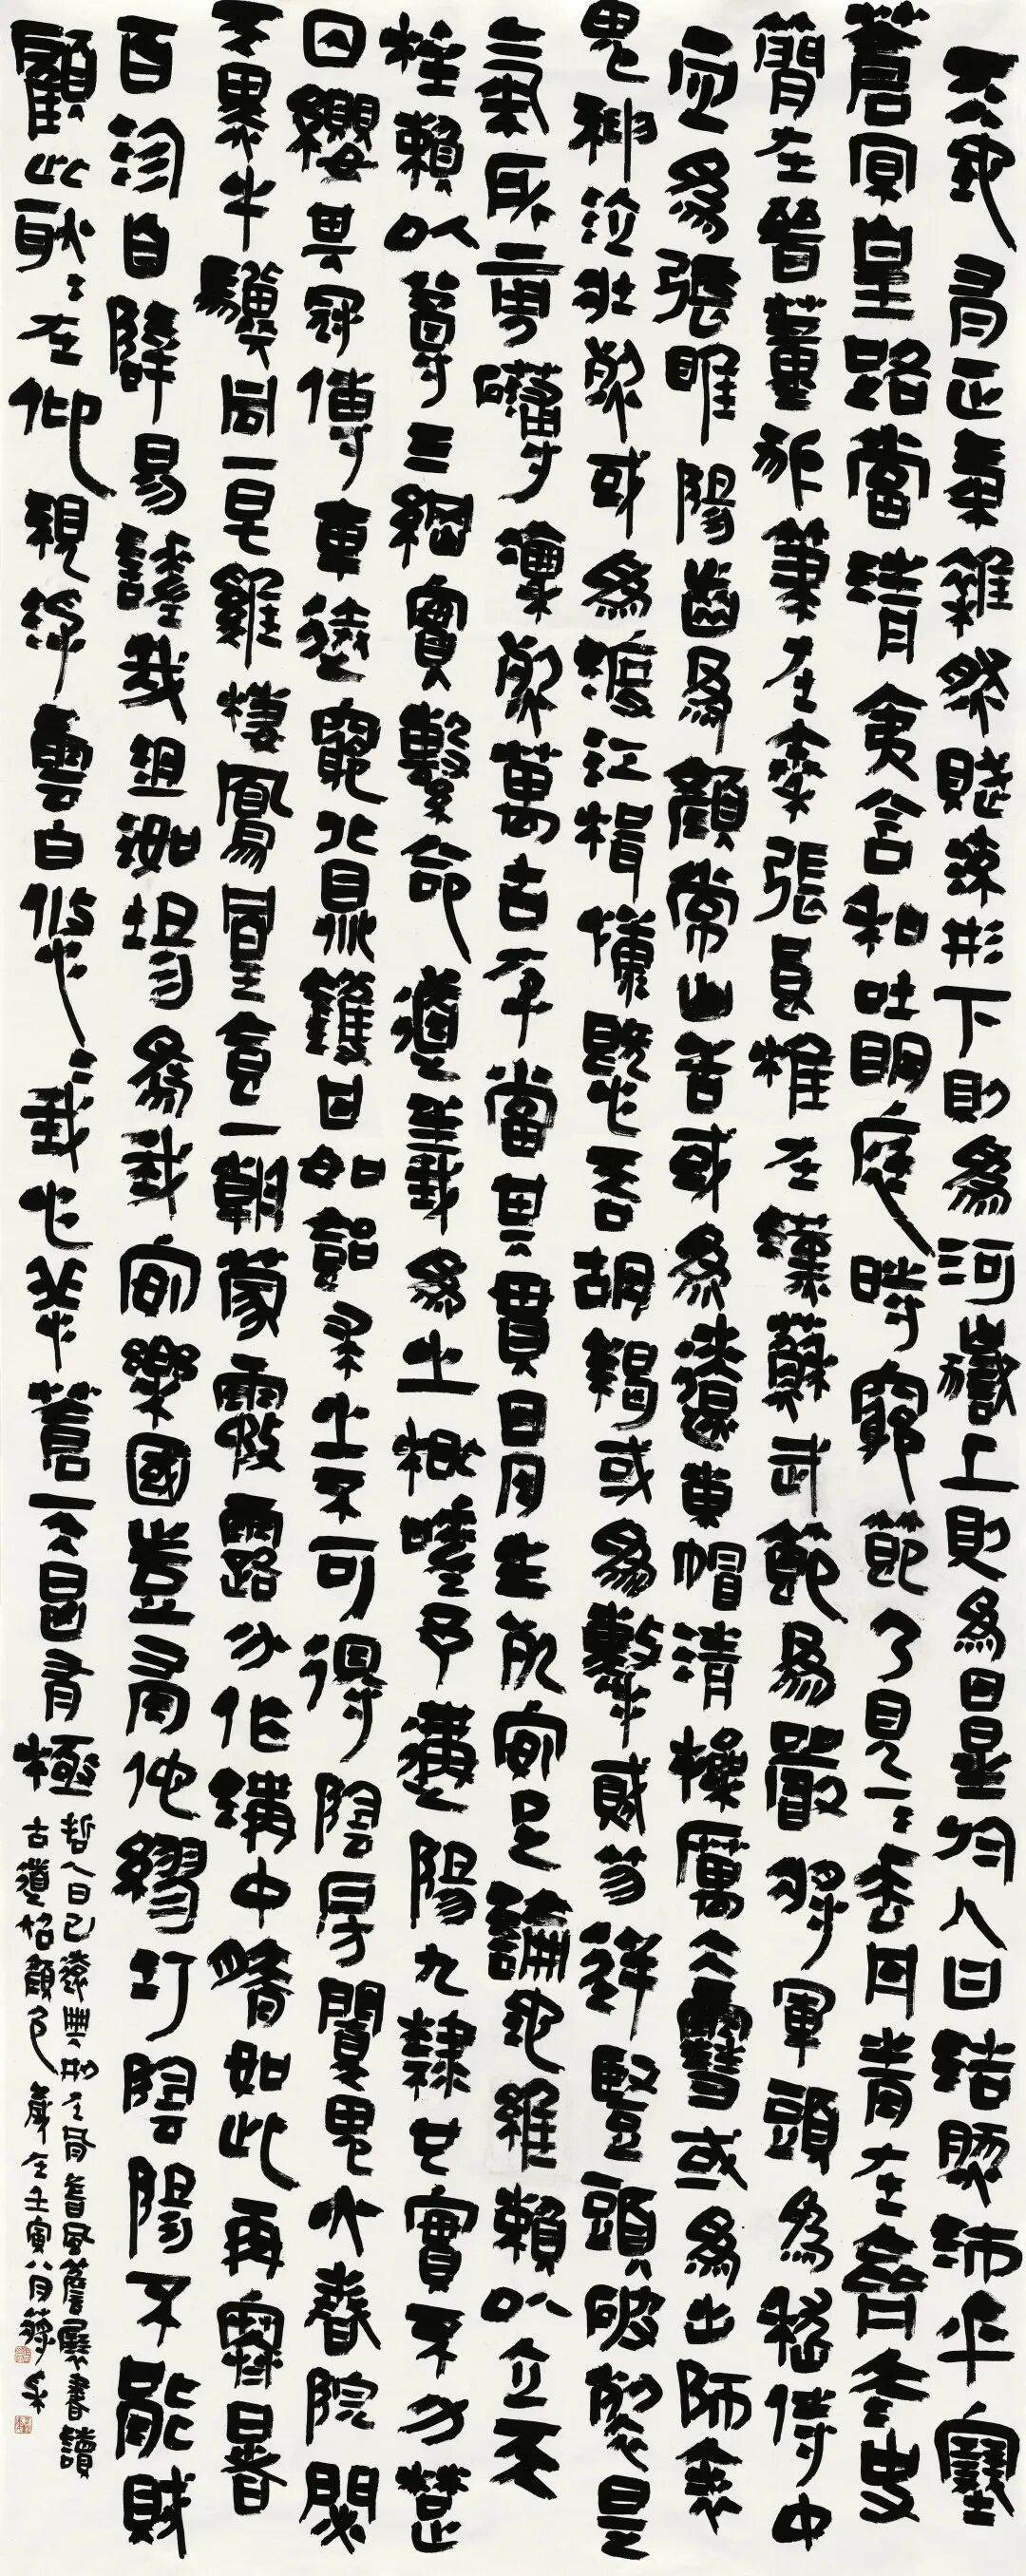 天地有正氣雜然賦流形下則為河嶽上則為日星於人曰浩然沛乎塞
蒼冥皇路當清夷含和吐明庭時窮節乃見一一垂丹青在齊太史
簡在晉董狐筆在秦張良椎在漢蘇武節為嚴將軍頭為嵇侍中
血為張睢陽齒為顏常山舌或為遼東帽清操厲冰雪或為出師表
鬼神泣壯烈或為渡江楫慷慨吞胡羯或為擊賊笏逆豎頭破裂是
氣所磅礴凜烈萬古存當其貫日月生死安足論地維賴以立天
柱賴以尊三綱實繫命道義為之根嗟予遘陽九隸也實不力楚
囚纓其冠傳車送窮北鼎鑊甘如飴求之不可得陰房闃鬼火春院閟
天黑牛驥同一皂雞棲鳳凰食一朝蒙霧露分作溝中瘠如此再寒暑
百沴自辟易嗟哉沮洳場為我安樂國豈有他繆巧陰陽不能賊
顧此耿耿在仰視浮雲白悠悠我心悲蒼天曷有極
哲人日已遠典刑在夙昔風簷展書讀
古道照顏色歲在壬寅八月